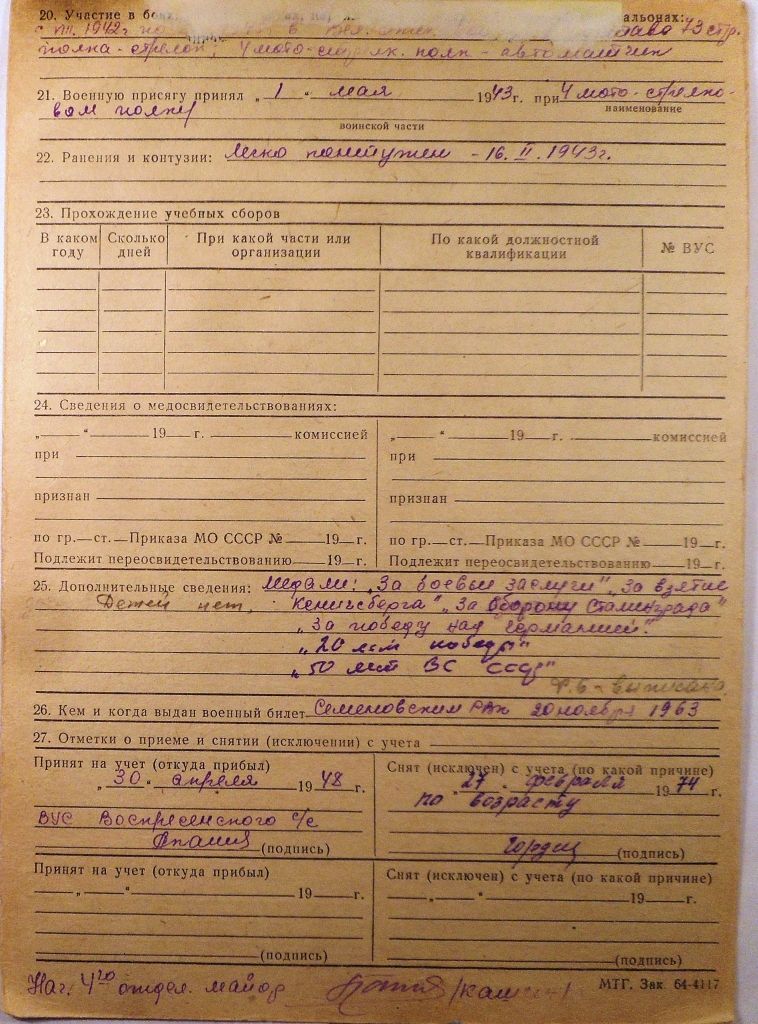 20. Участие в альонах:
с VIII. 1942г по в 73 стр.
полка-стрелок; 4 мото-стрелк. полк - автоматчик
21. Военную присягу принял „ 1 “ мая 1943 г. при 4 мото-стрелко-
вом полку наименование
воинской части
22. Ранения и контузии: Легко контужен - 16. II. 1943г.
23. Прохождение учебных сборов
В каком году Сколько дней При какой части или организации По какой должностной квалификации № ВУС
24. Сведения о медосвидетельствованиях:
„ “ 19 г. комиссией „ “ 19 г. комиссией
при при
признан признан
по гр. ст. Приказа МО СССР № 19 г. по гр. ст. Приказа МО СССР № 19 г.
Подлежит переосвидетельствованию 19 г. Подлежит переосвидетельствованию 19 г.
25. Дополнительные сведения: Медали: „За боевые заслуги" „За взятие
Детей нет, Кенигсберга" „За оборону Сталинграда"
„За победу над Германией."
„20 лет победы"
„50 лет ВС СССР"
Ф.6 - выписана
26. Кем и когда выдан военный билет Семеновским РВК 20 ноября 1963
27. Отметки о приеме и снятии (исключении) с учета
Принят на учет (откуда прибыл) Снят (исключен) с учета (по какой причине)
„ 30 “ апреля 19 48 г. „ 27 “ февраля 19 74 г.
по возрасту
ВУС Воспресенского с/с
(подпись) (подпись)
Принят на учет (откуда прибыл) Снят (исключен) с учета (по какой причине)
„ “ 19 г. „ “ 19 г.
(подпись) (подпись)
Нач. 4го отдел. майор
МТГ. Зак. 64-4117